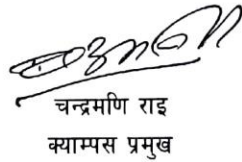 चन्द्रमणि राइ
क्याम्पस प्रमुख